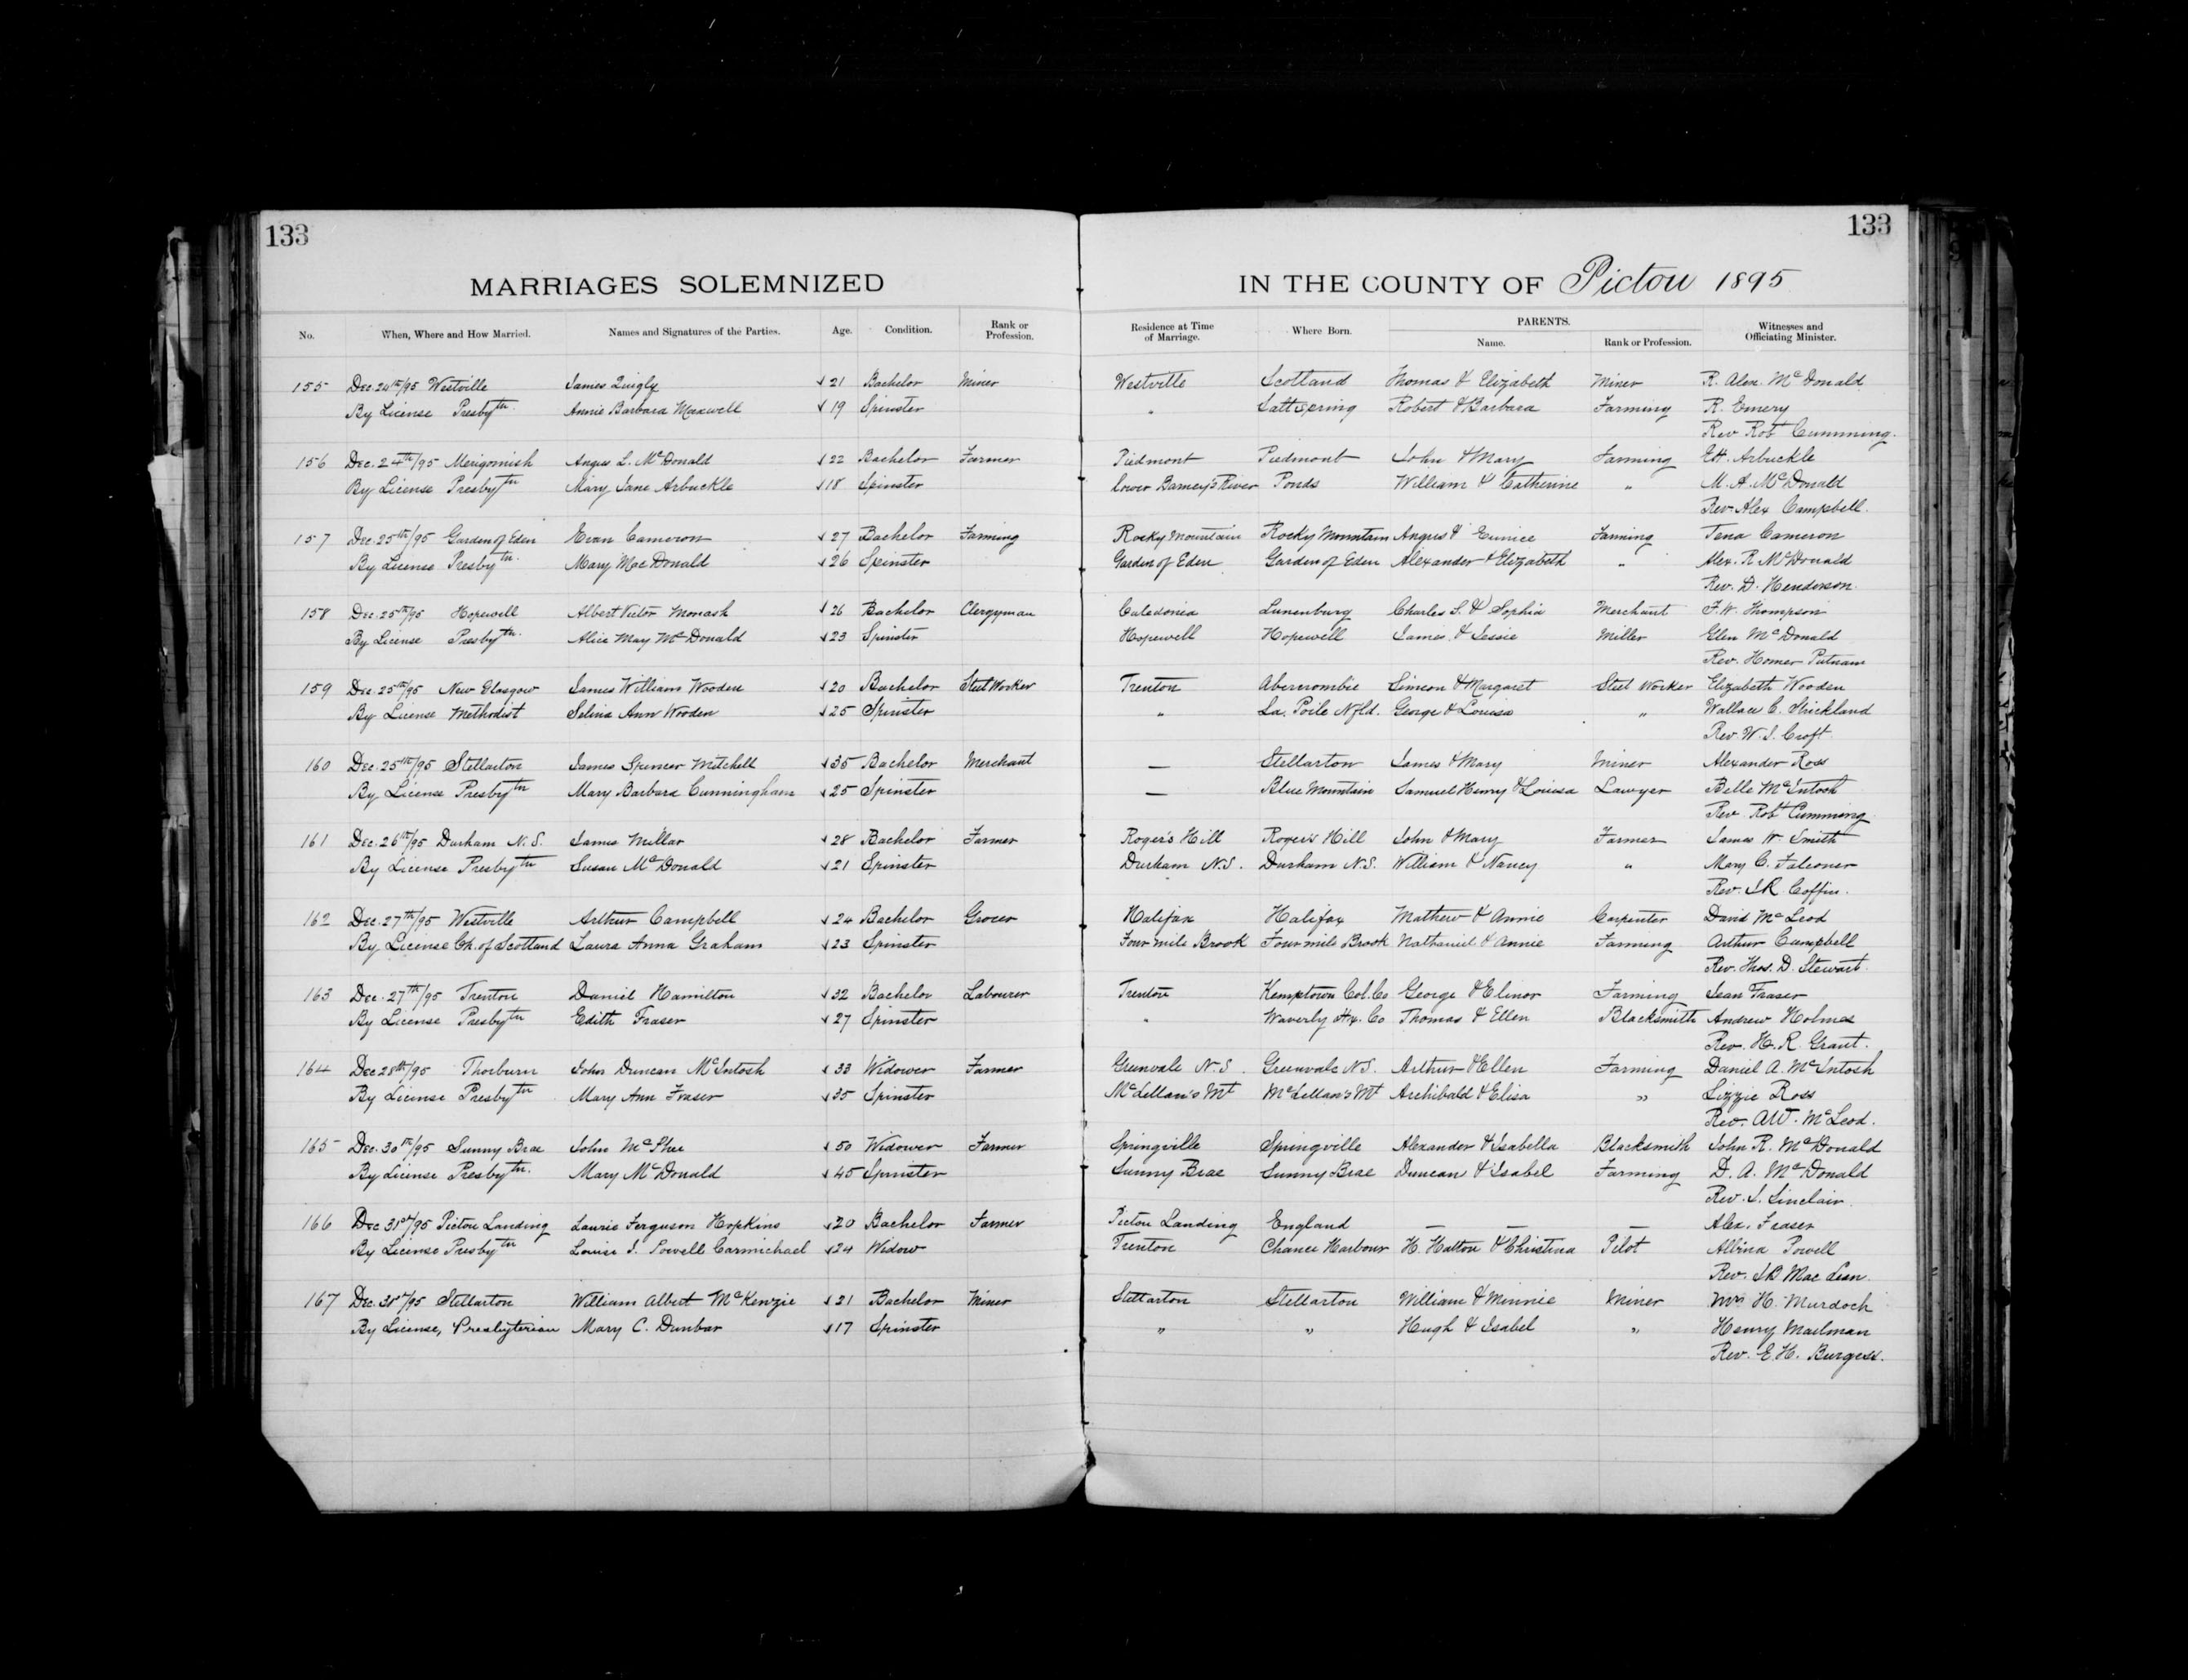 133
133
MARRIAGES SOLEMNIZED IN THE COUNTY OF Pictou 1895
No. When, Where and How Married. Names and Signatures of the Parties. Age. Condition. Rank or Profession. Residence at Time of Marriage. Where Born. PARENTS. Name. Rank or Profession. Witnesses and Officiating Minister.
155 Dec. 24th/95 Westville James Quigly 21 Bachelor Miner Westville Scotland Thomas & Elizabeth Miner R. Alex. McDonald
By License Presbytn. Annie Barbara Maxwell 19 Spinster " Saltspring Robert & Barbara Farming R. Emery
Rev Robt Cumming.
156 Dec. 24th/95 Merigomish Angus L. McDonald 22 Bachelor Farmer Piedmont Piedmont John & Mary Farming E.H. Arbuckle
By License Presbytn Mary Jane Arbuckle 18 Spinster Lower Barney's River Ponds William & Catherine " M. A. McDonald
Rev. Alex Campbell.
157 Dec. 25th/95 Garden of Eden Evan Cameron 27 Bachelor Farming Rocky Mountain Rocky Mountain Angus & Eunice Farming Tena Cameron
By License Presbytn. Mary MacDonald 26 Spinster Garden of Eden Garden of Eden Alexander & Elizabeth " Alex. R McDonald
Rev. D. Henderson.
158 Dec. 25th/95 Hopewell Albert Victor Morash 26 Bachelor Clergyman Caledonia Lunenburg Charles S. & Sophia Merchant F. W. Thompson
By License Presbytn. Alice May McDonald 23 Spinster Hopewell Hopewell James & Jessie Miller Glen McDonald
Rev. Homer Putnam
159 Dec. 25th/95 New Glasgow James William Wooden 20 Bachelor Steel Worker Trenton Abercrombie Simeon & Margaret Steel Worker Elizabeth Wooden
By License Methodist Selina Ann Wooden 25 Spinster " La Poile Nfld. George & Louisa " Wallace C. Strickland
Rev. W. S. Croft.
160 Dec. 25th/95 Stellarton James Spencer Mitchell 35 Bachelor Merchant — Stellarton James & Mary Miner Alexander Ross
By License Presbytn Mary Barbara Cunningham 25 Spinster — Blue Mountain Samuel Henry & Louisa Lawyer Belle McIntosh
Rev. Robt Cumming
161 Dec. 26th/95 Durham N.S. James Millar 28 Bachelor Farmer Roger's Hill Roger's Hill John & Mary Farmer James W. Smith
By License Presbytn Susan McDonald 21 Spinster Durham N.S. Durham N.S. William & Nancy " Mary C. Falconer
Rev. J.R. Coffin.
162 Dec. 27th/95 Westville Arthur Campbell 24 Bachelor Grocer Halifax Halifax Mathew & Annie Carpenter David McLeod
By License Ch. of Scotland Laura Anna Graham 23 Spinster Four mile Brook Four mile Brook Nathaniel & Annie Farming Arthur Campbell
Rev. Thos. D. Stewart.
163 Dec. 27th/95 Trenton Daniel Hamilton 32 Bachelor Labourer Trenton Kemptown Col. Co George & Elinor Farming Jean Fraser
By License Presbytn Edith Fraser 27 Spinster " Waverly Hx. Co Thomas & Ellen Blacksmith Andrew Holmes
Rev. H. R. Grant.
164 Dec 28th/95 Thorburn John Duncan McIntosh 33 Widower Farmer Greenvale N.S. Greenvale N.S. Arthur & Ellen Farming Daniel A. McIntosh
By License Presbytn Mary Ann Fraser 35 Spinster McLellan's Mt McLellan's Mt Archibald & Elisa " Lizzie Ross
Rev. A.W. McLeod.
165 Dec. 30th/95 Sunny Brae John McPhee 50 Widower Farmer Springville Springville Alexander & Isabella Blacksmith John R. McDonald
By License Presbytn. Mary McDonald 45 Spinster Sunny Brae Sunny Brae Duncan & Isabel Farming D. A. McDonald
Rev. J. Sinclair.
166 Dec 31st/95 Pictou Landing Laurie Ferguson Hopkins 20 Bachelor Farmer Pictou Landing England — — — Alex. Fraser
By License Presbytn Louise J. Powell Carmichael 24 Widow Trenton Chance Harbour H. Hatton & Christina Pilot Albina Powell
Rev. J.B MacLean.
167 Dec. 31st/95 Stellarton William Albert McKenzie 21 Bachelor Miner Stellarton Stellarton William & Minnie Miner Mrs H. Murdoch
By License, Presbyterian Mary C. Dunbar 17 Spinster " " Hugh & Isabel " Henry Mailman
Rev. E. H. Burgess.